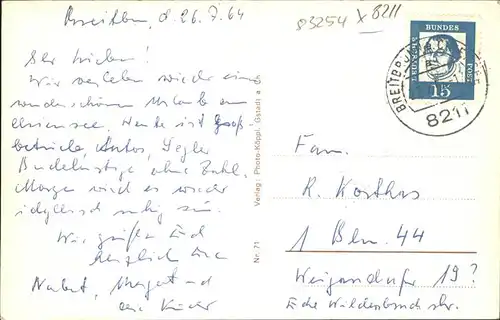 Breitbr., d. 26.7.64
83254 x 8211
Ihr Lieben!
Wir verleben wieder einen
wunderschönen Urlaub am
Chiemsee. Heute ist Groß-
betrieb, Autos, Segler
Badelustige ohne Zahl.
Morgen wird es wieder
idyllisch ruhig sein.
Wir grüßen Euch
herzlich Eure
Margot und
die Kinder
Verlag: Photo-Köppl, Gstadt a. Ch.
Nr. 71
DEUTSCHE BUNDESPOST
15
BREITBRUNN
8211
Fam.
R. Korthus
1 Bln. 44
19?
Ecke Wildenbruchstr.